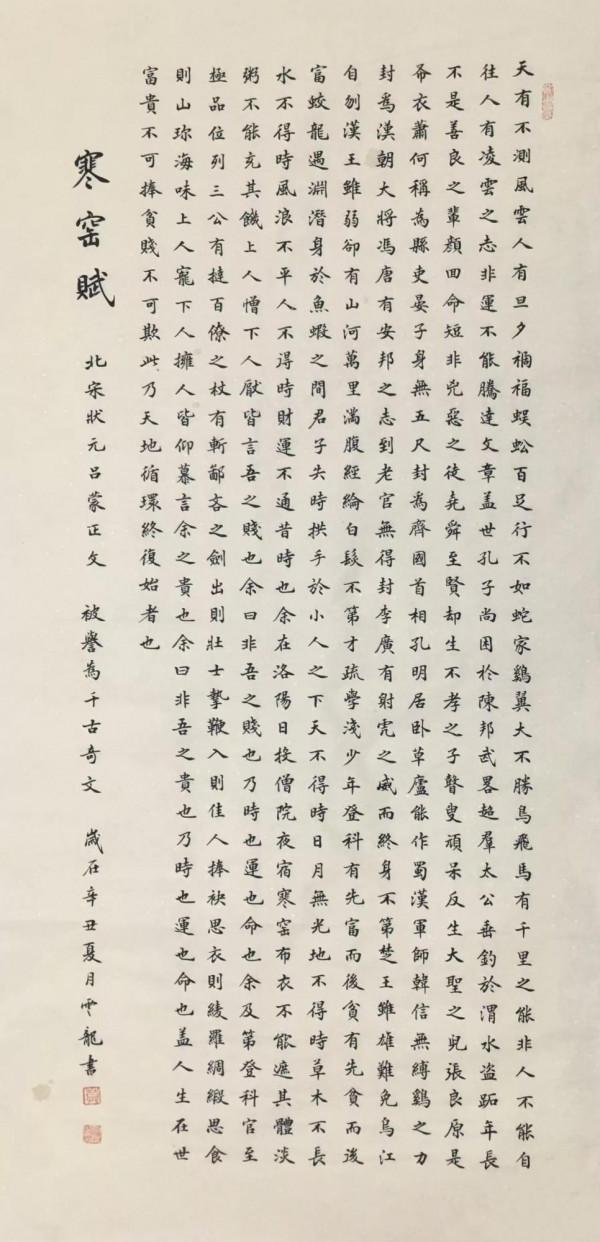 天有不測風雲人有旦夕禍福蜈蚣百足行不如蛇家鷄翼大不勝鳥飛馬有千里之能非人不能自
往人有凌雲之志非運不能騰達文章盖世孔子尚困於陳邦武畧超羣太公垂釣於渭水盜跖年長
不是善良之輩顏回命短非兇惡之徒堯舜至賢却生不孝之子瞽叟頑呆反生大聖之兒張良原是
布衣蕭何稱為縣吏晏子身無五尺封為齊國首相孔明居卧草廬能作蜀漢軍師韓信無縛鷄之力
封為漢朝大將馮唐有安邦之志到老官無得封李廣有射虎之威而終身不第楚王雖雄難免烏江
自刎漢王雖弱卻有山河萬里滿腹經綸白髮不第才疏學淺少年登科有先富而後貧有先貧而後
富蛟龍遇淵潛身於魚蝦之間君子失時拱手於小人之下天不得時日月無光地不得時草木不長
水不得時風浪不平人不得時財運不通昔時也余在洛陽日投僧院夜宿寒窑布衣不能遮其體淡
粥不能充其饑上人憎下人厭皆言吾之賤也余曰非吾之賤也乃時也運也命也余及第登科官至
極品位列三公有撻百僚之杖有斬鄙吝之劍出則壯士摯鞭入則佳人捧袂思衣則綾羅綢緞思食
則山珍海味上人寵下人擁人皆仰慕言余之貴也余曰非吾之貴也乃時也運也命也盖人生在世
富貴不可捧貧賤不可欺此乃天地循環終復始者也
寒窑賦 北宋狀元呂蒙正文 被譽為千古奇文 歲在辛丑夏月雲龍書